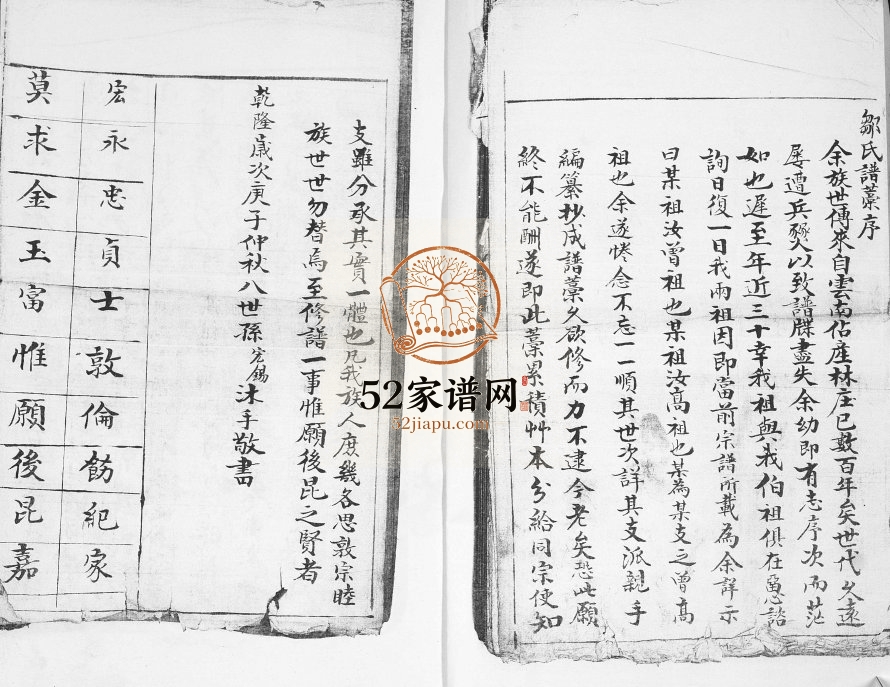 鄒氏譜藁序
余族世傳來自雲南佔産林庄已數百年矣世代久遠
屡遭兵燹以致譜牒盡失余幼即有志序次而茫
如也遲至年近三十幸我祖與我伯祖俱在慇諮
詢日復一日我兩祖因即當前宗譜所載為余詳示
曰某祖汝曾祖也某祖汝高祖也某為某支之曾高
祖也余遂惓念不忘一一順其世次詳其支派親手
編纂抄成譜藁久欲修而力不逮今老矣恐此願
終不能酬遂即此藁累積艸本分給同宗使知
支雖分承其實一體也凡我族人庶幾各思敦宗睦
族世世勿替焉至修譜一事惟願後昆之賢者
乾隆歲次庚子仲秋八世孫宏錫沐手敬書
宏永忠貞士敦倫飭紀家
莫求金玉富惟願後昆嘉
52家谱网
52jiapu.com